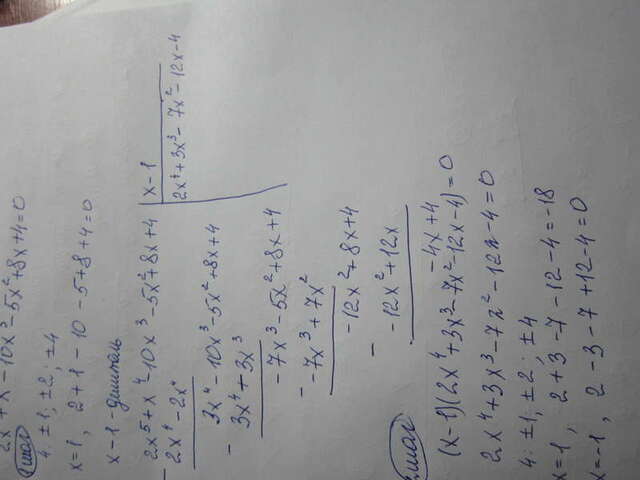 2x⁵ + x⁴ - 10x³ - 5x² + 8x + 4 = 0
4: ±1, ±2; ±4
x=1, 2+1-10-5+8+4=0
x-1-делитель
2x⁵+x⁴-10x³-5x²+8x+4 | x-1
2x⁴-2x⁴ 2x⁴+3x³-7x²-12x-4
- 3x⁴-10x³-5x²+8x+4
3x⁴+3x³
-7x³-5x²+8x+4
- -7x³+7x²
-12x²+8x+4
- -12x²+12x
-4x+4
(x-1)(2x⁴+3x³-7x²-12x-4)=0
2x⁴+3x³-7x²-12x-4=0
4: ±1, ±2; ±4
x=1, 2+3-7-12-4=-18
x=-1, 2-3-7+12-4=0